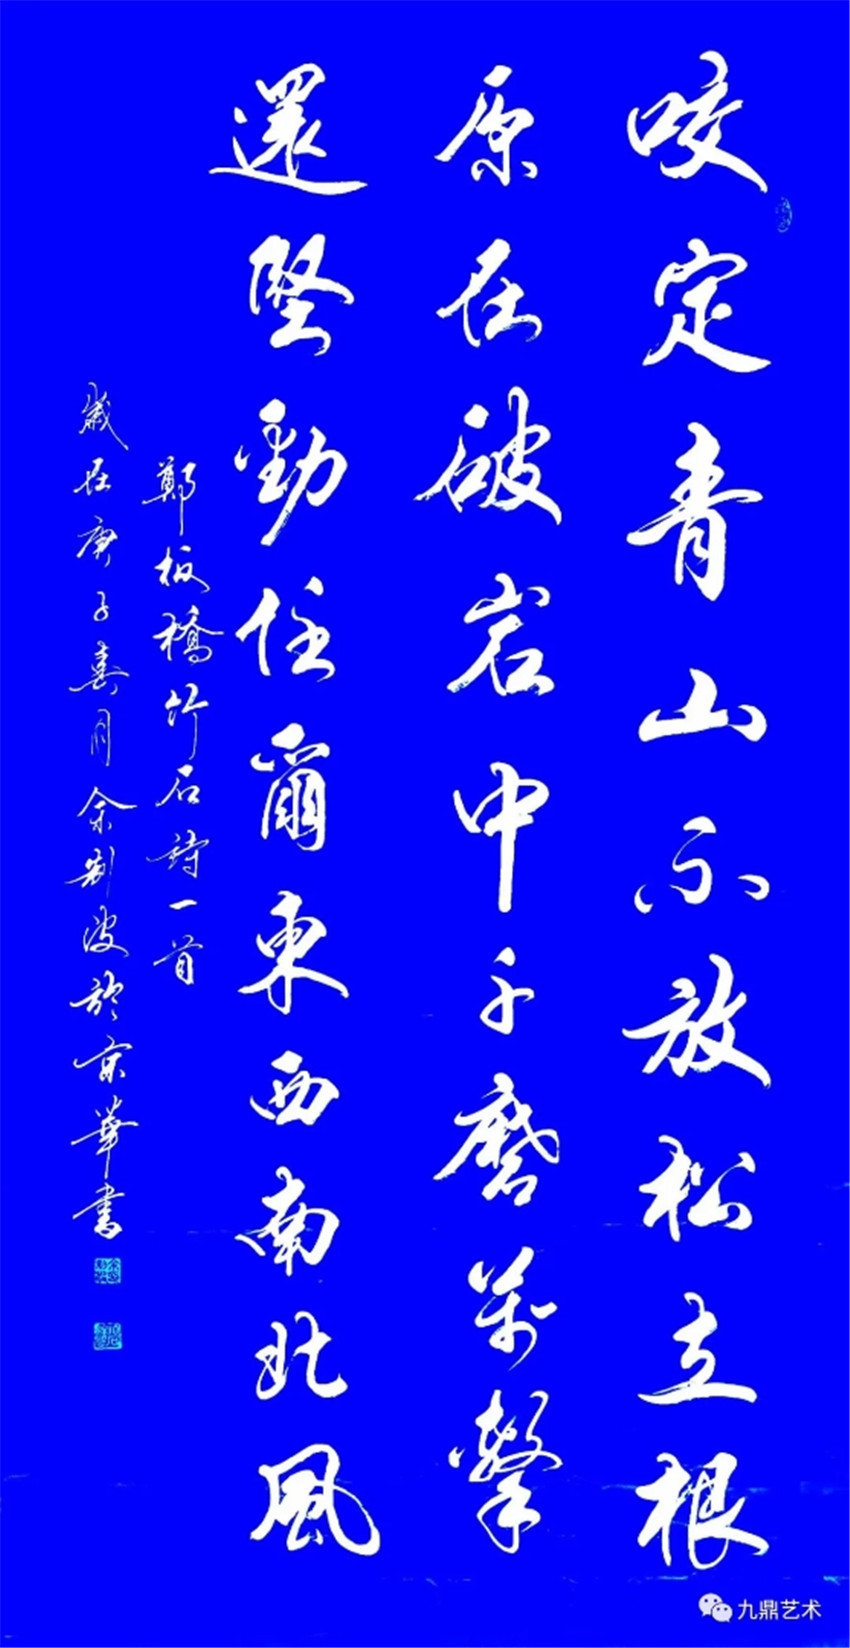 咬定青山不放松立根
原在破岩中千磨萬擊
還堅勁任爾東西南北風
鄭板橋竹石詩一首
歲在庚子月余制波於京華書
九鼎艺术